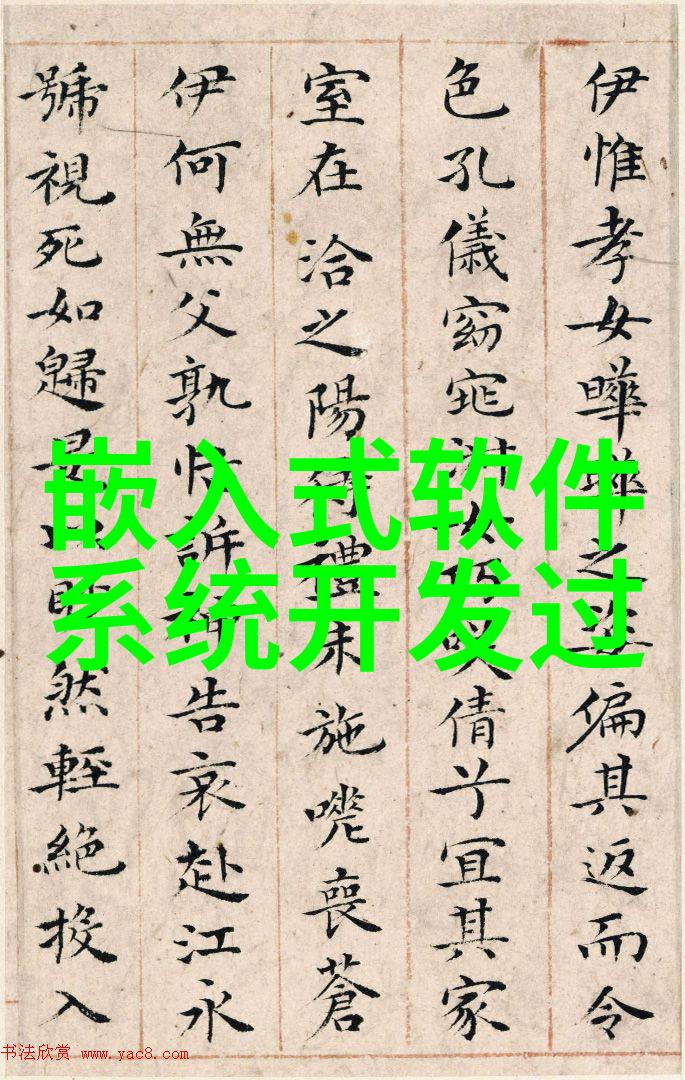 伊惟孝女曄曄之姿偏其返而令
色孔儀窈窕淑女巧笑倩兮宜其家
室在洽之陽待禮未施嗟喪蒼
伊何無父孰怙訴神告哀赴江永
號視死如歸是以眇然輕絕投入
嵌入式软件
系统开发过
书法欣赏 www.yac8.com